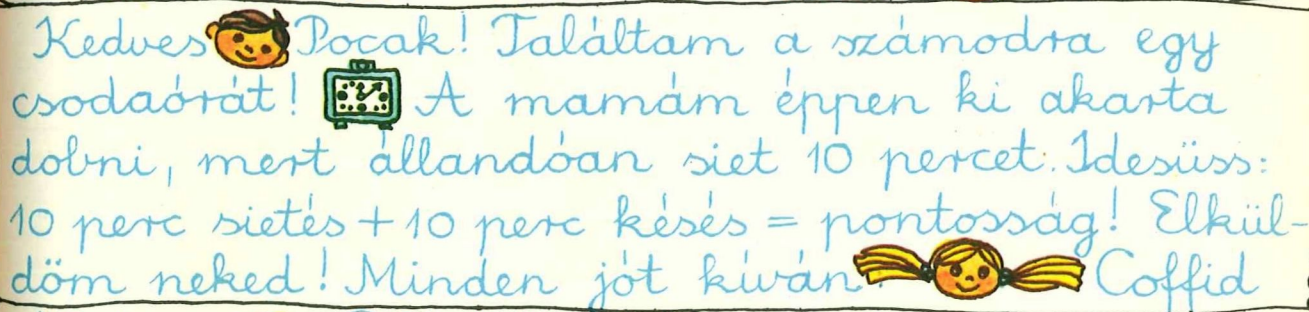 Kedves Pocak! Találtam a számodra egy
csodaórát! A mamám éppen ki akarta
dobni, mert állandóan siet 10 percet. Idesüss:
10 perc sietés + 10 perc késés = pontosság! Elkül-
döm neked! Minden jót kíván: Coffid